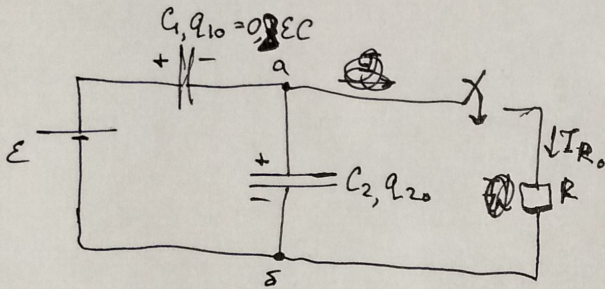 C₁, q₁₀ = 0,8 εC
+ -
a
ε
+
-
C₂, q₂₀
I_R₀
R
б